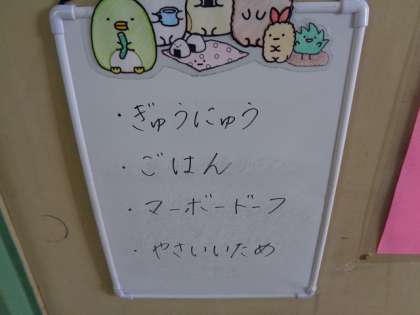 ・ぎゅうにゅう
・ごはん
・マーボードーフ
・やさいいため